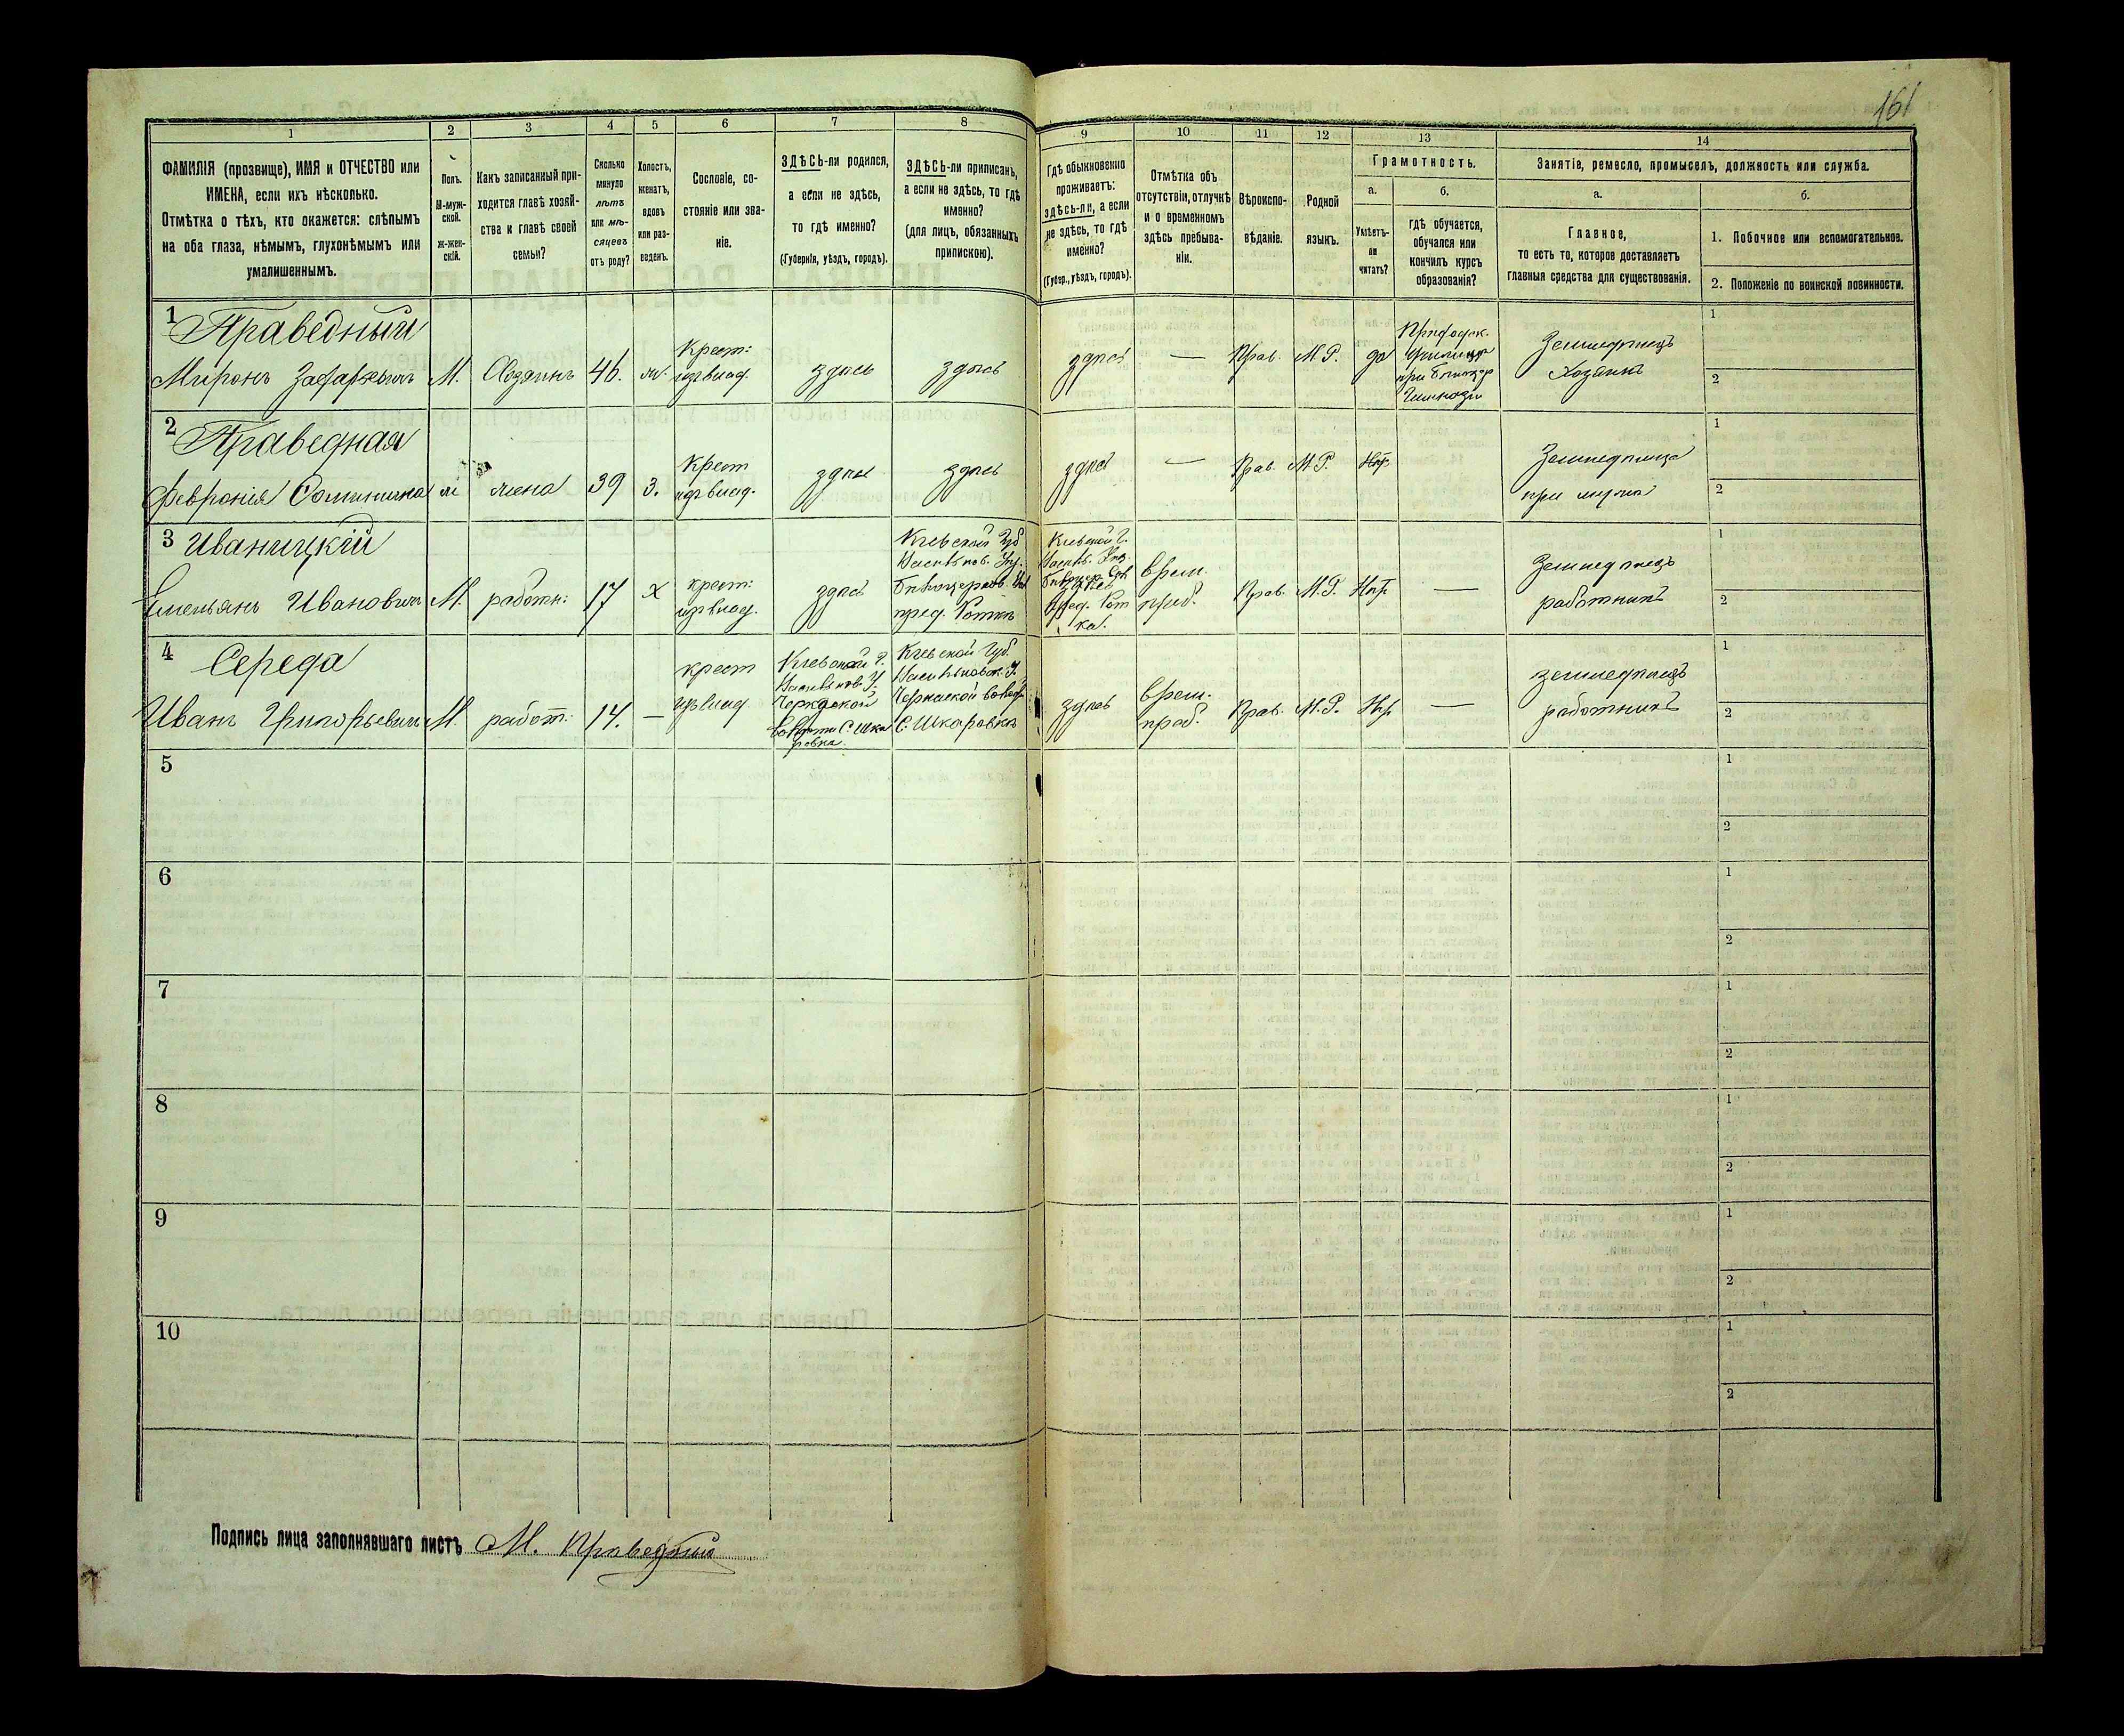 161
1 2 3 4 5 6 7 8 9 10 11 12 13 14
ФАМИЛІЯ (прозвище), ИМЯ и ОТЧЕСТВО или
ИМЕНА, если ихъ нѣсколько.
Отмѣтка о тѣхъ, кто окажется: слѣпымъ
на оба глаза, нѣмымъ, глухонѣмымъ или
умалишеннымъ.
Полъ.
М-муж-
ской.
Ж-жен-
скій.
Какъ записанный при-
ходится главѣ хозяй-
ства и главѣ своей
семьи?
Сколько
минуло
лѣтъ
или мѣ-
сяцевъ
отъ роду?
Холостъ,
женатъ,
вдовъ
или раз-
веденъ.
Сословіе, со-
стояніе или зва-
ніе.
ЗДѢСЬ-ли родился,
а если не здѣсь,
то гдѣ именно?
(Губернія, уѣздъ, городъ).
ЗДѢСЬ-ли приписанъ,
а если не здѣсь, то гдѣ
именно?
(для лицъ, обязанныхъ
припискою).
Гдѣ обыкновенно
проживаетъ:
здѣсь-ли, а если
не здѣсь, то гдѣ
именно?
(Губер., уѣздъ, городъ).
Отмѣтка объ
отсутствіи, отлучкѣ
и о временномъ
здѣсь пребыва-
ніи.
Вѣроиспо-
вѣданіе.
Родной
языкъ.
Грамотность.
а.
Умѣетъ-
ли
читать?
б.
Гдѣ обучается,
обучался или
кончилъ курсъ
образованія?
Занятіе, ремесло, промыселъ, должность или служба.
а.
Главное,
то есть то, которое доставляетъ
главныя средства для существованія.
б.
1. Побочное или вспомогательное.
2. Положеніе по воинской повинности.
1 Праведный
Миронъ Захарьевичъ М. Хозяинъ 46. ж.
Крест:
изъ влад.
здѣсь здѣсь здѣсь — Прав. М.Р. да
Приходск.
училище
при
Гимназіи
Земледѣлецъ
Хозяинъ
1
2
2 Праведная
Февронія жена 39 З.
Крест
изъ влад.
здѣсь здѣсь здѣсь — Прав. М.Р. Нѣт
Земледѣлица
при мужѣ
1
2
3 Иваницкій
Емельянъ Ивановичъ М. работн: 17 х
крест:
изъ влад.
здѣсь
Кіевской Губ
Васильков. Уѣз.
Бѣлоцерков.
пред. Роток
Кіевской Г.
Васильк. Уѣз.
пред. Рот
ка.
врем.
преб.
Прав. М.Р. Нѣт —
Земледѣлецъ
работникъ
1
2
4 Середа
Иванъ Григорьевичъ М. работ: 14. —
крест
изъ влад
Кіевской Г.
Васильков. У.
Черкаской
Волости С. Шка
ровка.
Кіевской Губ.
Васильковск. У.
Черкаской волос.
С. Шкаровкѣ
здѣсь
врем.
преб.
Прав. М.Р. Нѣт —
земледѣлецъ
работникъ
1
2
5
1
2
6
1
2
7
1
2
8
1
2
9
1
2
10
1
2
Подпись лица заполнявшаго листъ М. Праведный